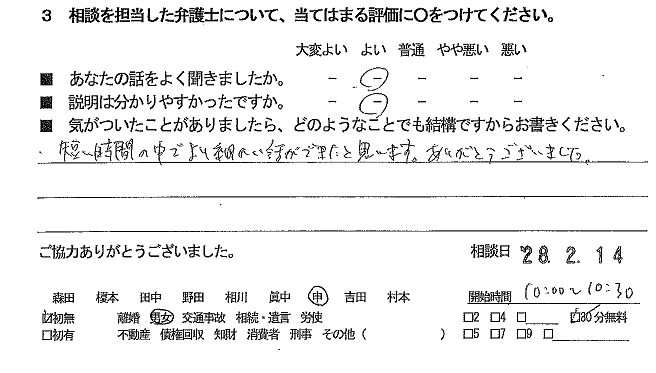 3 相談を担当した弁護士について、当てはまる評価に〇をつけてください。
大変よい よい 普通 やや悪い 悪い
■ あなたの話をよく聞きましたか。 － － － － －
■ 説明は分かりやすかったですか。 － － － － －
■ 気がついたことがありましたら、どのようなことでも結構ですからお書きください。
短い時間の中でより細かい話ができたと思います。ありがとうございました。
ご協力ありがとうございました。 相談日 '28. 2. 14
森田 榎本 田中 野田 相川 眞中 申 吉田 村本 開始時間 10:00～10:30
☑初無 離婚 男女 交通事故 相続・遺言 労使 □2 □4 □ ☑30分無料
□初有 不動産 債権回収 知財 消費者 刑事 その他( ) □5 □7 □9 □